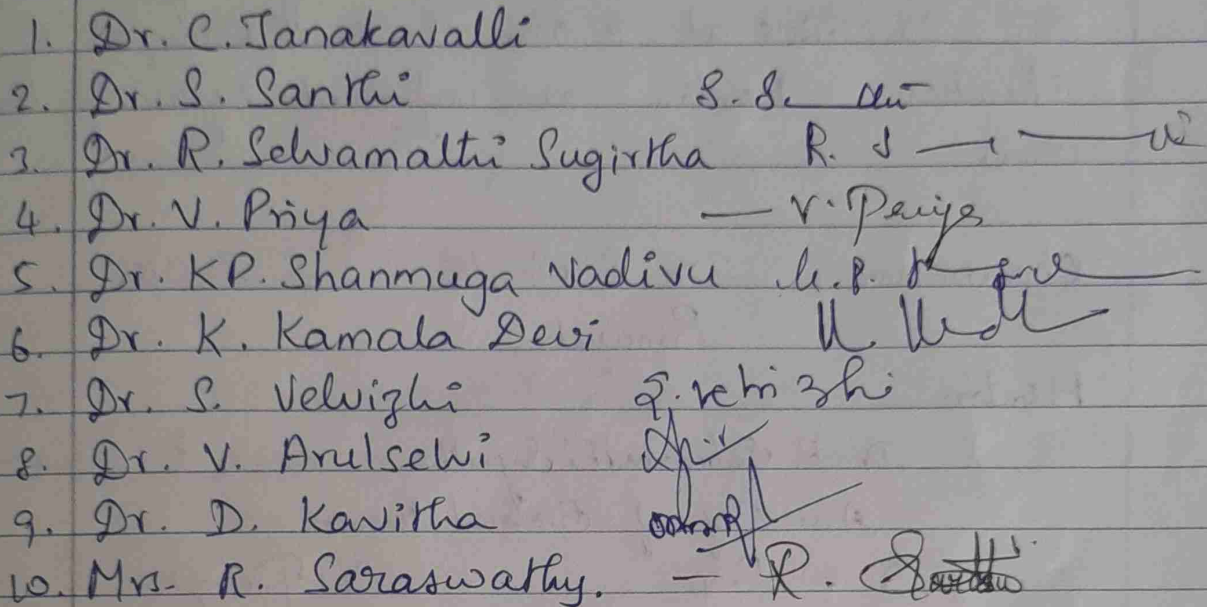 1. Dr. C. Janakavalli
2. Dr. S. Santhi S. S
3. Dr. R. Selvamalthi Sugirtha R. S
4. Dr. V. Priya — V. Priya
5. Dr. KP. Shanmuga Vadivu K.P.
6. Dr. K. Kamala Devi K.
7. Dr. S. Velvizhi S. Velvizhi
8. Dr. V. Arulselvi
9. Dr. D. Kavitha
10. Mrs. R. Saraswathy. — R.